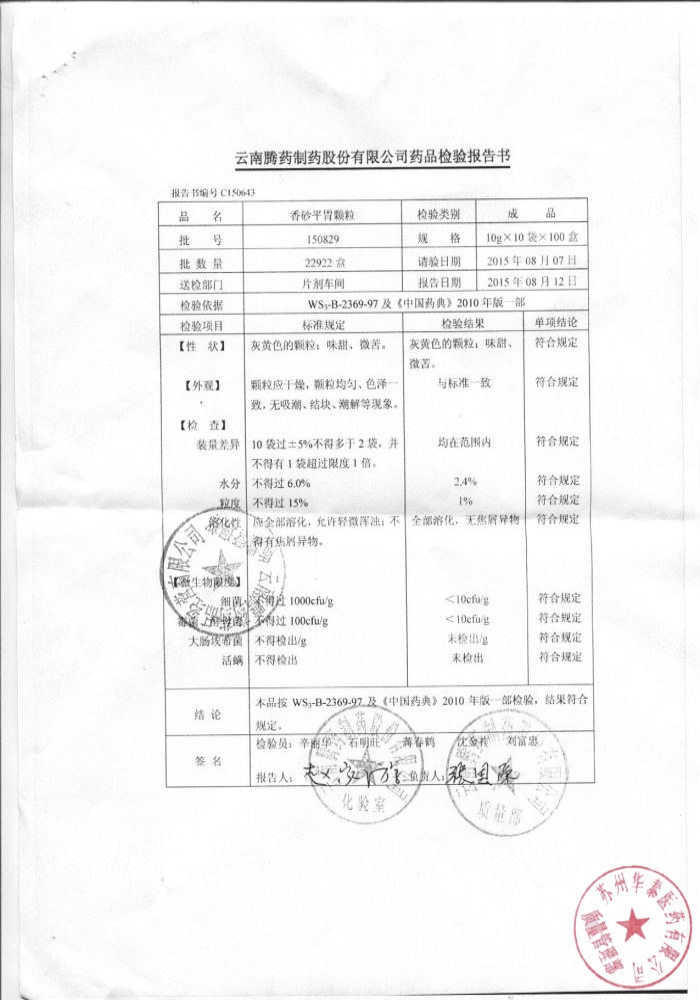 云南腾药制药股份有限公司药品检验报告书
报告书编号 C150643
品 名 香砂平胃颗粒 检验类别 成 品
批 号 150829 规 格 10g×10袋×100盒
批数量 22922盒 请验日期 2015年08月07日
送检部门 片剂车间 报告日期 2015年08月12日
检验依据 WS₃-B-2369-97及《中国药典》2010年版一部
检验项目 标准规定 检验结果 单项结论
【性 状】 灰黄色的颗粒；味甜、微苦。 灰黄色的颗粒；味甜、 符合规定
微苦。
【外观】 颗粒应干燥，颗粒均匀、色泽一 与标准一致 符合规定
致，无吸潮、结块、潮解等现象。
【检 查】
装量差异 10袋过±5%不得多于2袋，并 均在范围内 符合规定
不得有1袋超过限度1倍。
水分 不得过6.0% 2.4% 符合规定
粒度 不得过15% 1% 符合规定
溶化性 应全部溶化，允许轻微浑浊；不 全部溶化，无焦屑异物 符合规定
得有焦屑异物。
【微生物限度】
细菌 不得过1000cfu/g <10cfu/g 符合规定
霉菌 酵母菌 不得过100cfu/g <10cfu/g 符合规定
大肠埃希菌 不得检出/g 未检出/g 符合规定
活螨 不得检出 未检出 符合规定
结 论 本品按WS₃-B-2369-97及《中国药典》2010年版一部检验，结果符合
规定。
签 名 检验员：辛丽华 石明旺 蒋春鹤 沈金祥 刘富忠
报告人： 负责人：
化验室
质量部
苏州华泰医药有限公司
质量管理部